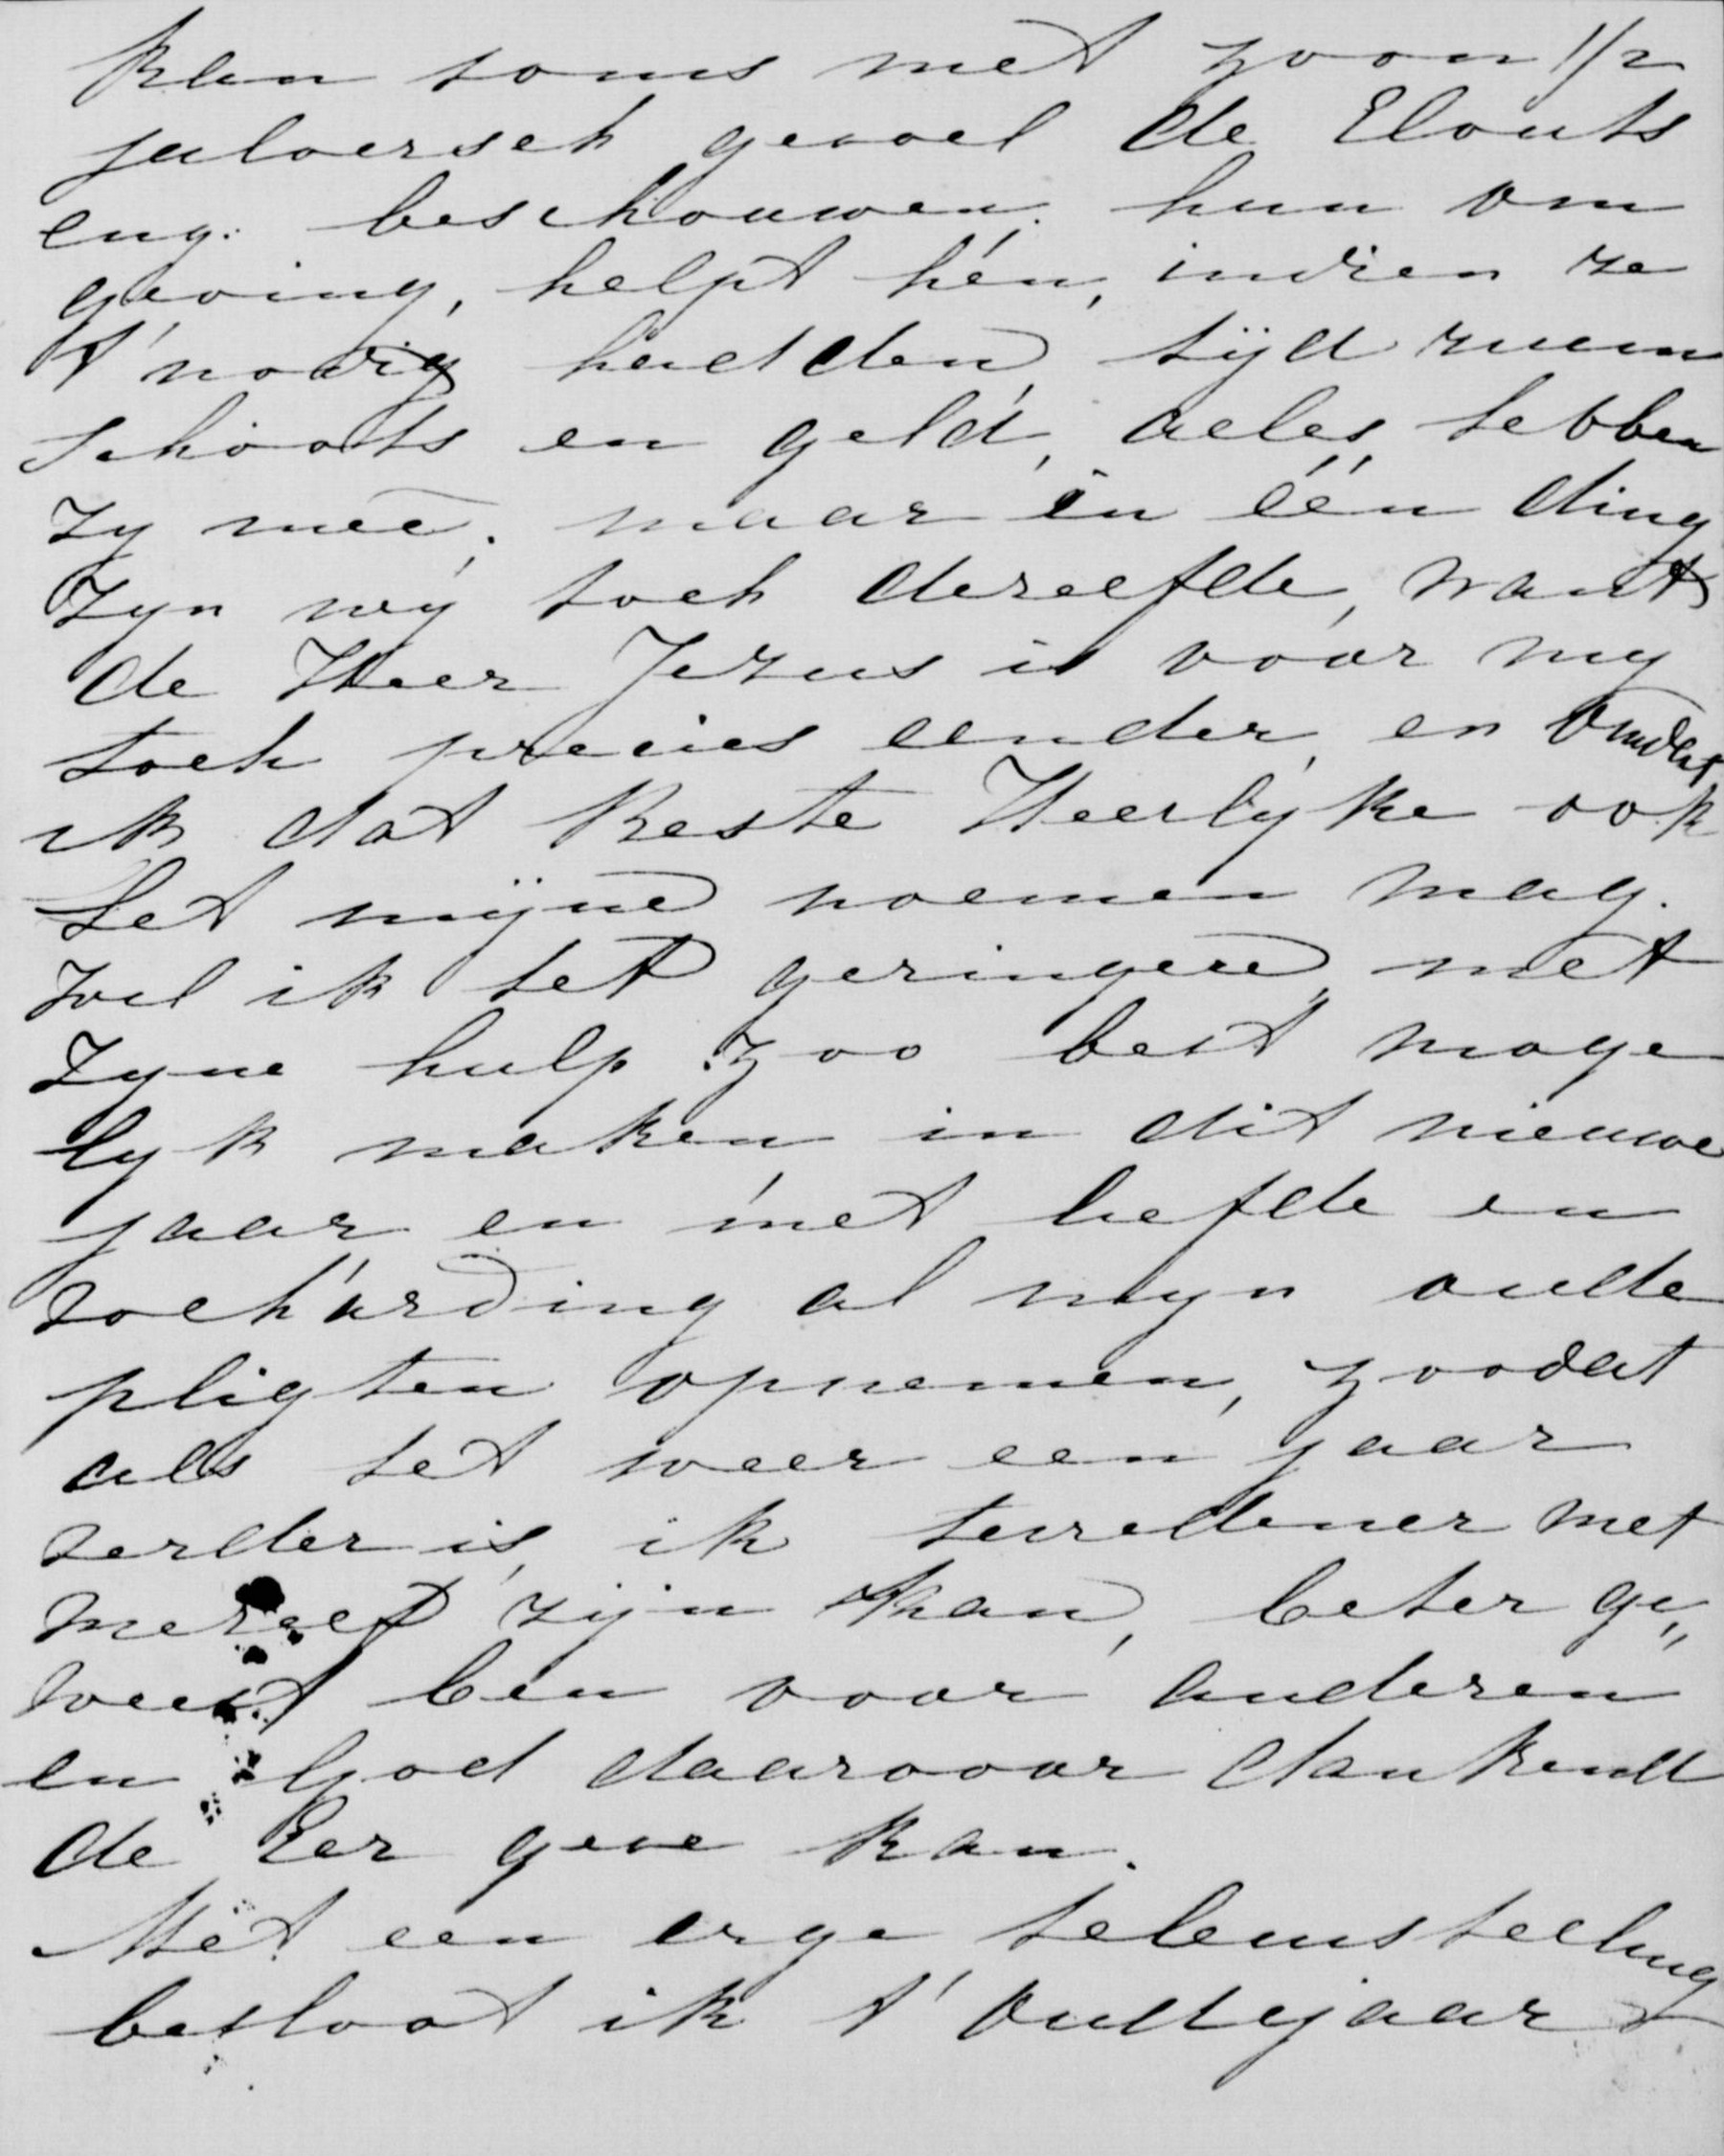 kan soms met zoon 1/2
jaloersch gevoel de Elouts
eng. beschouwen; hun om
geving, helpt hen, indien ze
t' nodig hadden, tijd ruim
schoots en geld, alles hebben
zy meê; maar in één ding
zyn wy toch dezelfde, want
de Heer Jezus is voor my
toch precies eender, en omdat
ik dat beste Heerlyke ook
het mijne noemen mag.
wil ik het geringere, met
zyne hulp zoo best moge
lyk maken in dit nieuwe
jaar en met liefde en
volharding al myn oude
pligten opnemen, zoodat
als het weer een jaar
verder is, ik tevredener met
mezelf zijn kan, beter ge„
weest ben voor anderen
en God daarvoor dankend
de Eer geve kan.
Met een erge teleurstelling
besloot ik t' Oudejaar